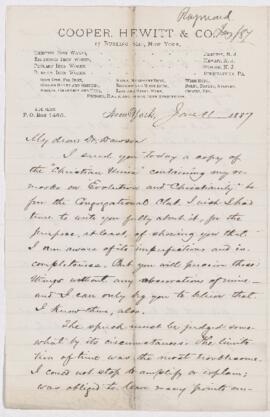 Raymond
Jan/87
COOPER, HEWITT & CO.
17 Burling Slip, New York.
TRENTON IRON WORKS,
RINGWOOD IRON WORKS,
PEQUEST IRON WORKS,
DURHAM IRON WORKS,
TRENTON, N. J.
P.O. Box
New York, June 1887
My dear Dr. Dawson
I send you today a copy
of the "Christian Union" containing my re-
marks on Evolution and Christianity to
the Congregational Club. I wish I had
time to write you fully about it, for the
purpose, at least, of showing you that
I am aware of its imperfections and in-
completeness. But you will perceive these
things without any observations of mine—
and I can only beg you to believe that
I know them, also.
The speech must be judged some-
what by its circumstances. The limita-
tion of time was the most troublesome.
I could not stop to amplify or explain;
was obliged to leave many points un-